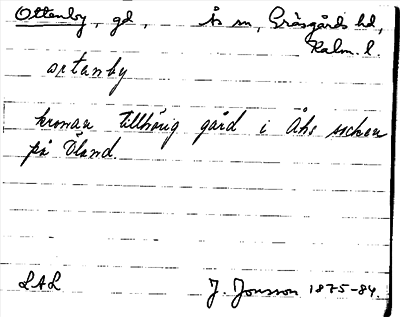 Ottenby, gd, Ås sn, Gräsgårds hd,
Kalm. l.
ortanby
kronan tillhörig gård i Åhs socken
på Öland.
LAL J. Jonsson 1875-84.